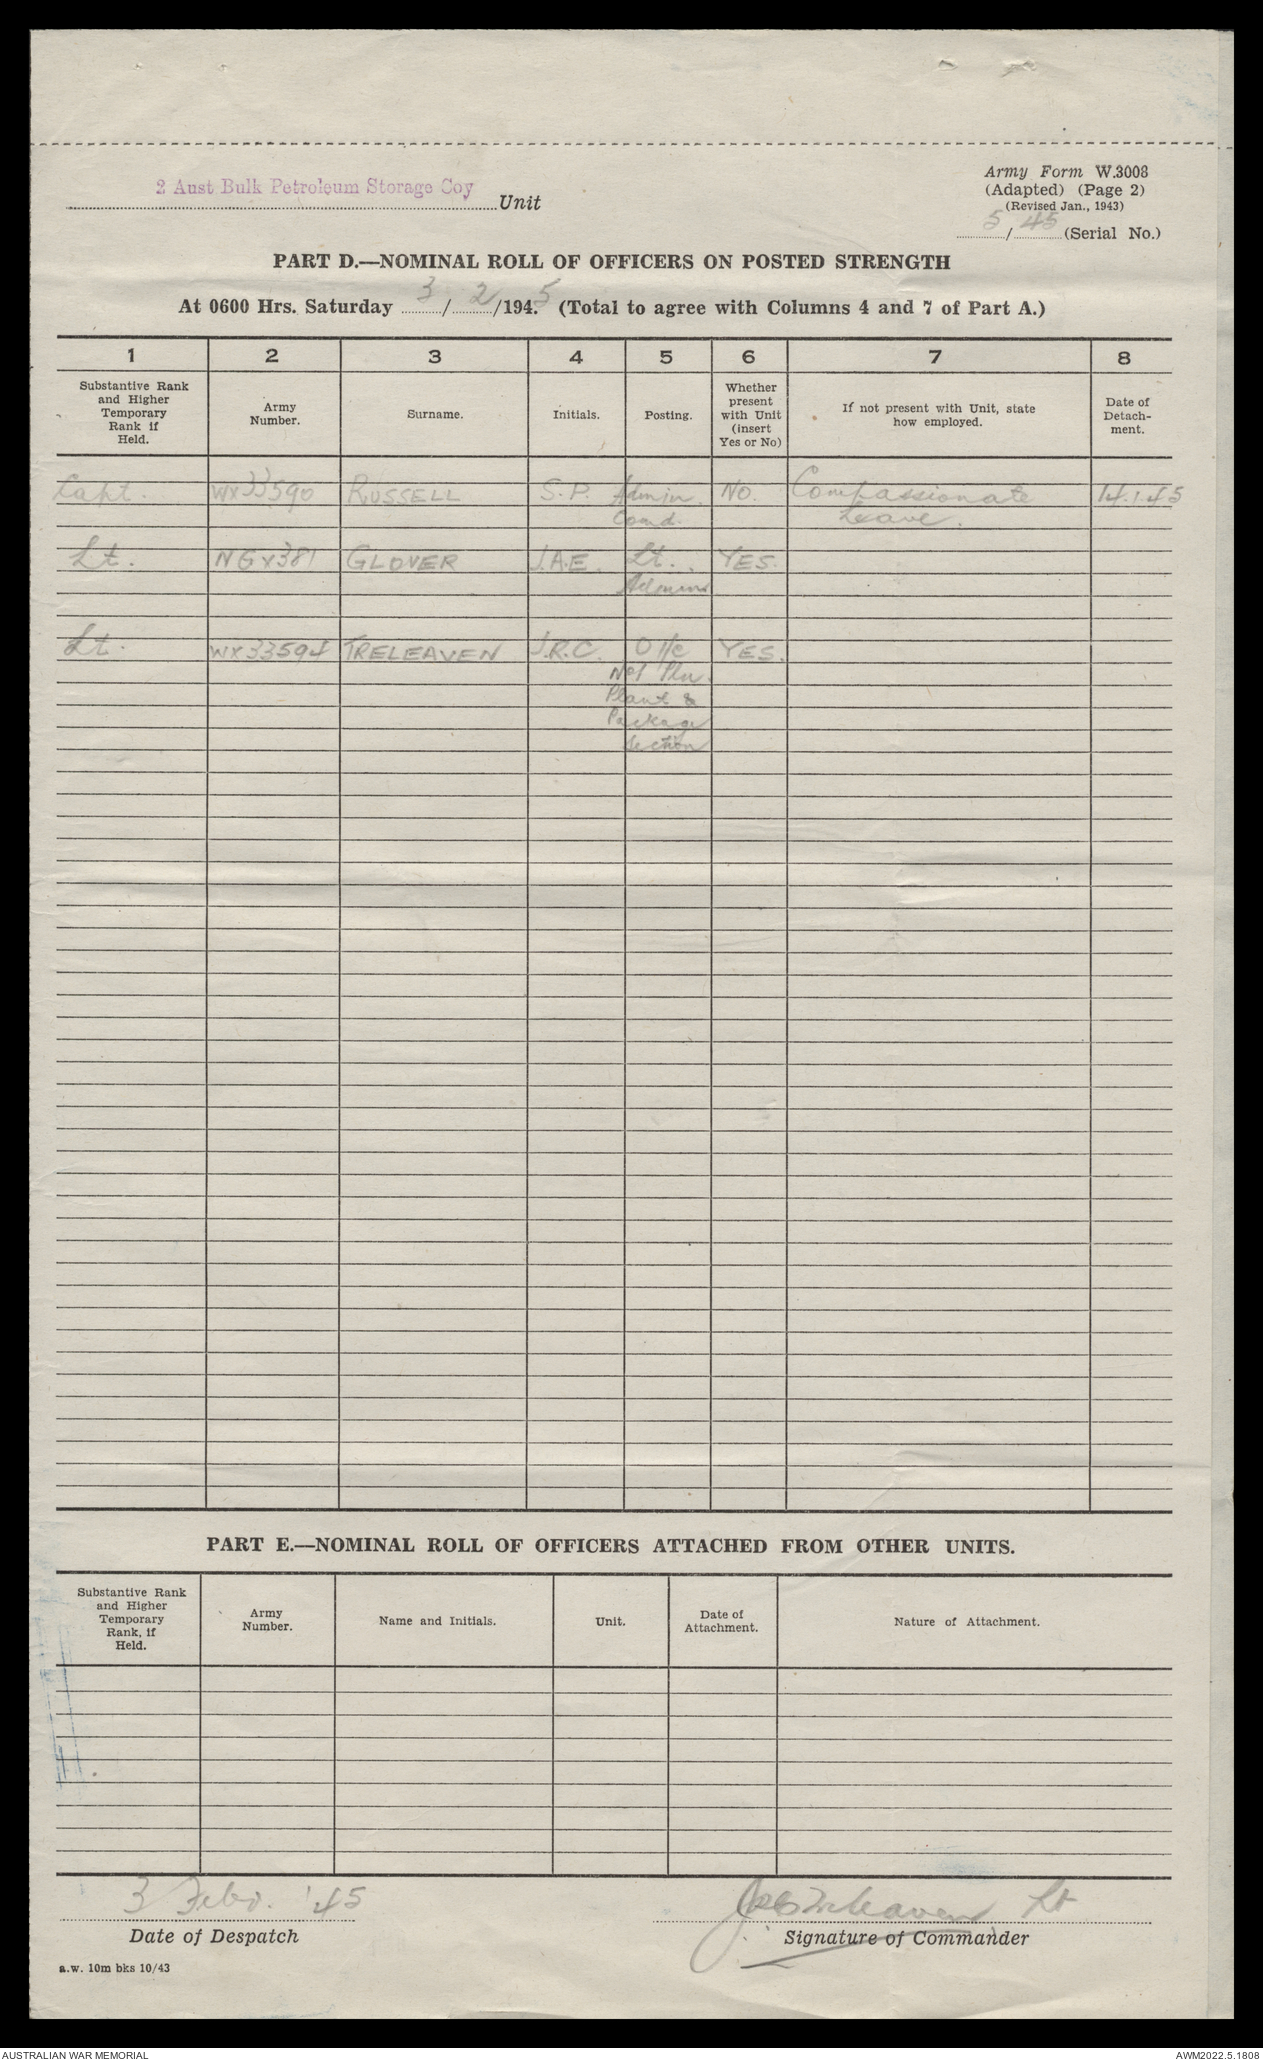 2 Aust Bulk Petroleum Storage Coy Unit
Army Form W.3008
(Adapted) (Page 2)
(Revised Jan., 1943)
5/45 (Serial No.)
PART D.—NOMINAL ROLL OF OFFICERS ON POSTED STRENGTH
At 0600 Hrs. Saturday 3/2/1945 (Total to agree with Columns 4 and 7 of Part A.)
1 2 3 4 5 6 7 8
Substantive Rank and Higher Temporary Rank if Held. Army Number. Surname. Initials. Posting. Whether present with Unit (insert Yes or No) If not present with Unit, state how employed. Date of Detach-ment.
Capt. WX33590 RUSSELL S.P. Admin. NO. Compassionate 14.1.45
Comd. Leave.
Lt. NGX381 GLOVER J.A.E. Lt. YES.
Admin
Lt. WX33594 TRELEAVEN J.R.C. O i/c YES.
No1 Pln.
Plant &
Package
Section
PART E.—NOMINAL ROLL OF OFFICERS ATTACHED FROM OTHER UNITS.
Substantive Rank and Higher Temporary Rank, if Held. Army Number. Name and Initials. Unit. Date of Attachment. Nature of Attachment.
3 Feby. '45 JRCTreleaven Lt
Date of Despatch Signature of Commander
a.w. 10m bks 10/43
AUSTRALIAN WAR MEMORIAL AWM2022.5.1808